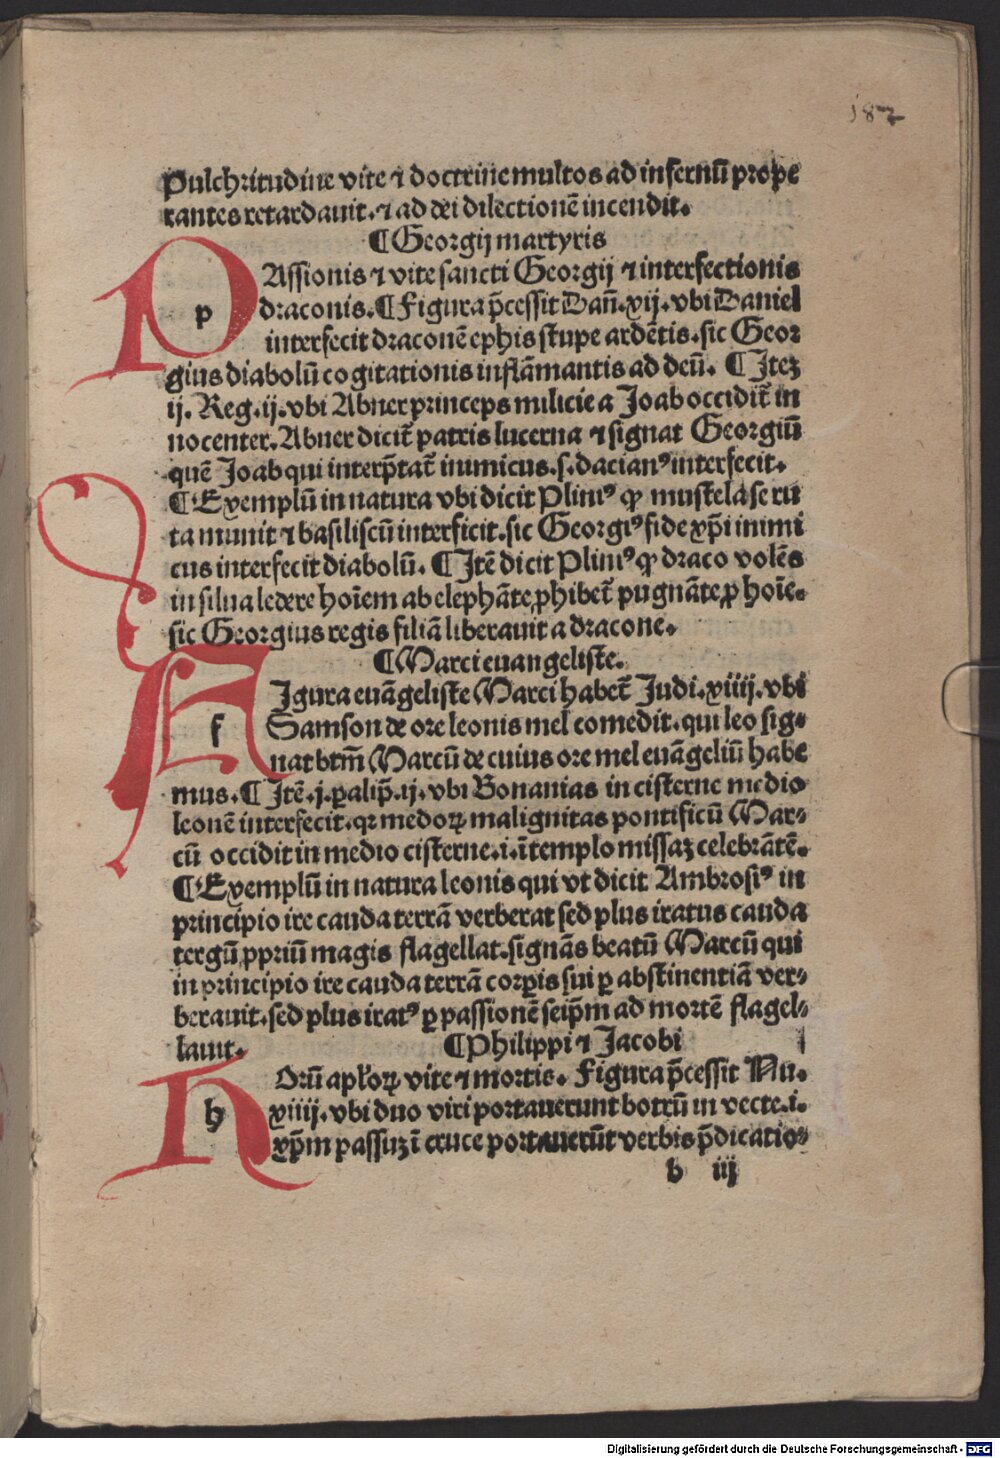 182
pulchritudine vite ⁊ doctrine multos ad infernū prope
rantes retardauit. ⁊ ad dei dilectionē incendit.
¶ Georgij martyris
PAssionis ⁊ vite sancti Georgij ⁊ interfectionis
p draconis. ¶ Figura p̄cessit Dan̄. xij. vbi Daniel
interfecit draconē ephis stupe ardētis. sic Geor
gius diabolū cogitationis inflāmantis ad deū. ¶ Itez
ij. Reg. ij. vbi Abner princeps milicie a Joab occidit̄ in
nocenter. Abner dicit̄ patris lucerna ⁊ signat Georgiū
quē Joab qui interp̄tat̄ inimicus. s. dacianꝰ interfecit.
¶ Exemplū in natura vbi dicit Pliniꝰ ꝙ mustela se ru
ta munit ⁊ basiliscū interficit. sic Georgiꝰ fide xp̄i inimi
cus interfecit diabolū. ¶ Itē dicit Pliniꝰ ꝙ draco volēs
in silua ledere hoīem ab elephāte ꝓhibet̄ pugnāte ꝓ hoīe.
sic Georgius regis filiā liberauit a dracone.
¶ Marci euangeliste.
FIgura euāgeliste Marci habet̄ Judi. xiiij. vbi
f Samson de ore leonis mel comedit. qui leo sig⸗
nat btm̄ Marcū de cuius ore mel euāgeliū habe
mus. ¶ Itē. j. ꝑalip̄. ij. vbi Bonanias in cisterne medio
leonē interfecit. qꝛ medoꝝ malignitas pontificū Mar⸗
cū occidit in medio cisterne. i. ī templo missaz celebrātē.
¶ Exemplū in natura leonis qui vt dicit Ambrosiꝰ in
principio ire cauda terrā verberat sed plus iratus cauda
tergū ꝓpriū magis flagellat. signās beatū Marcū qui
in principio ire cauda terrā corꝑis sui ꝑ abstinentiā ver⸗
berauit. sed plus iratꝰ ꝑ passionē seip̄m ad mortē flagel⸗
lauit. ¶ Philippi ⁊ Jacobi
HOrū apl̄oꝝ vite ⁊ mortis. Figura p̄cessit Nu.
h xiiij. vbi duo viri portauerunt botrū in vecte. i.
xp̄m passuz ī cruce portauerūt verbis p̄dicatio⸗
b iij
Digitalisierung gefördert durch die Deutsche Forschungsgemeinschaft - DFG